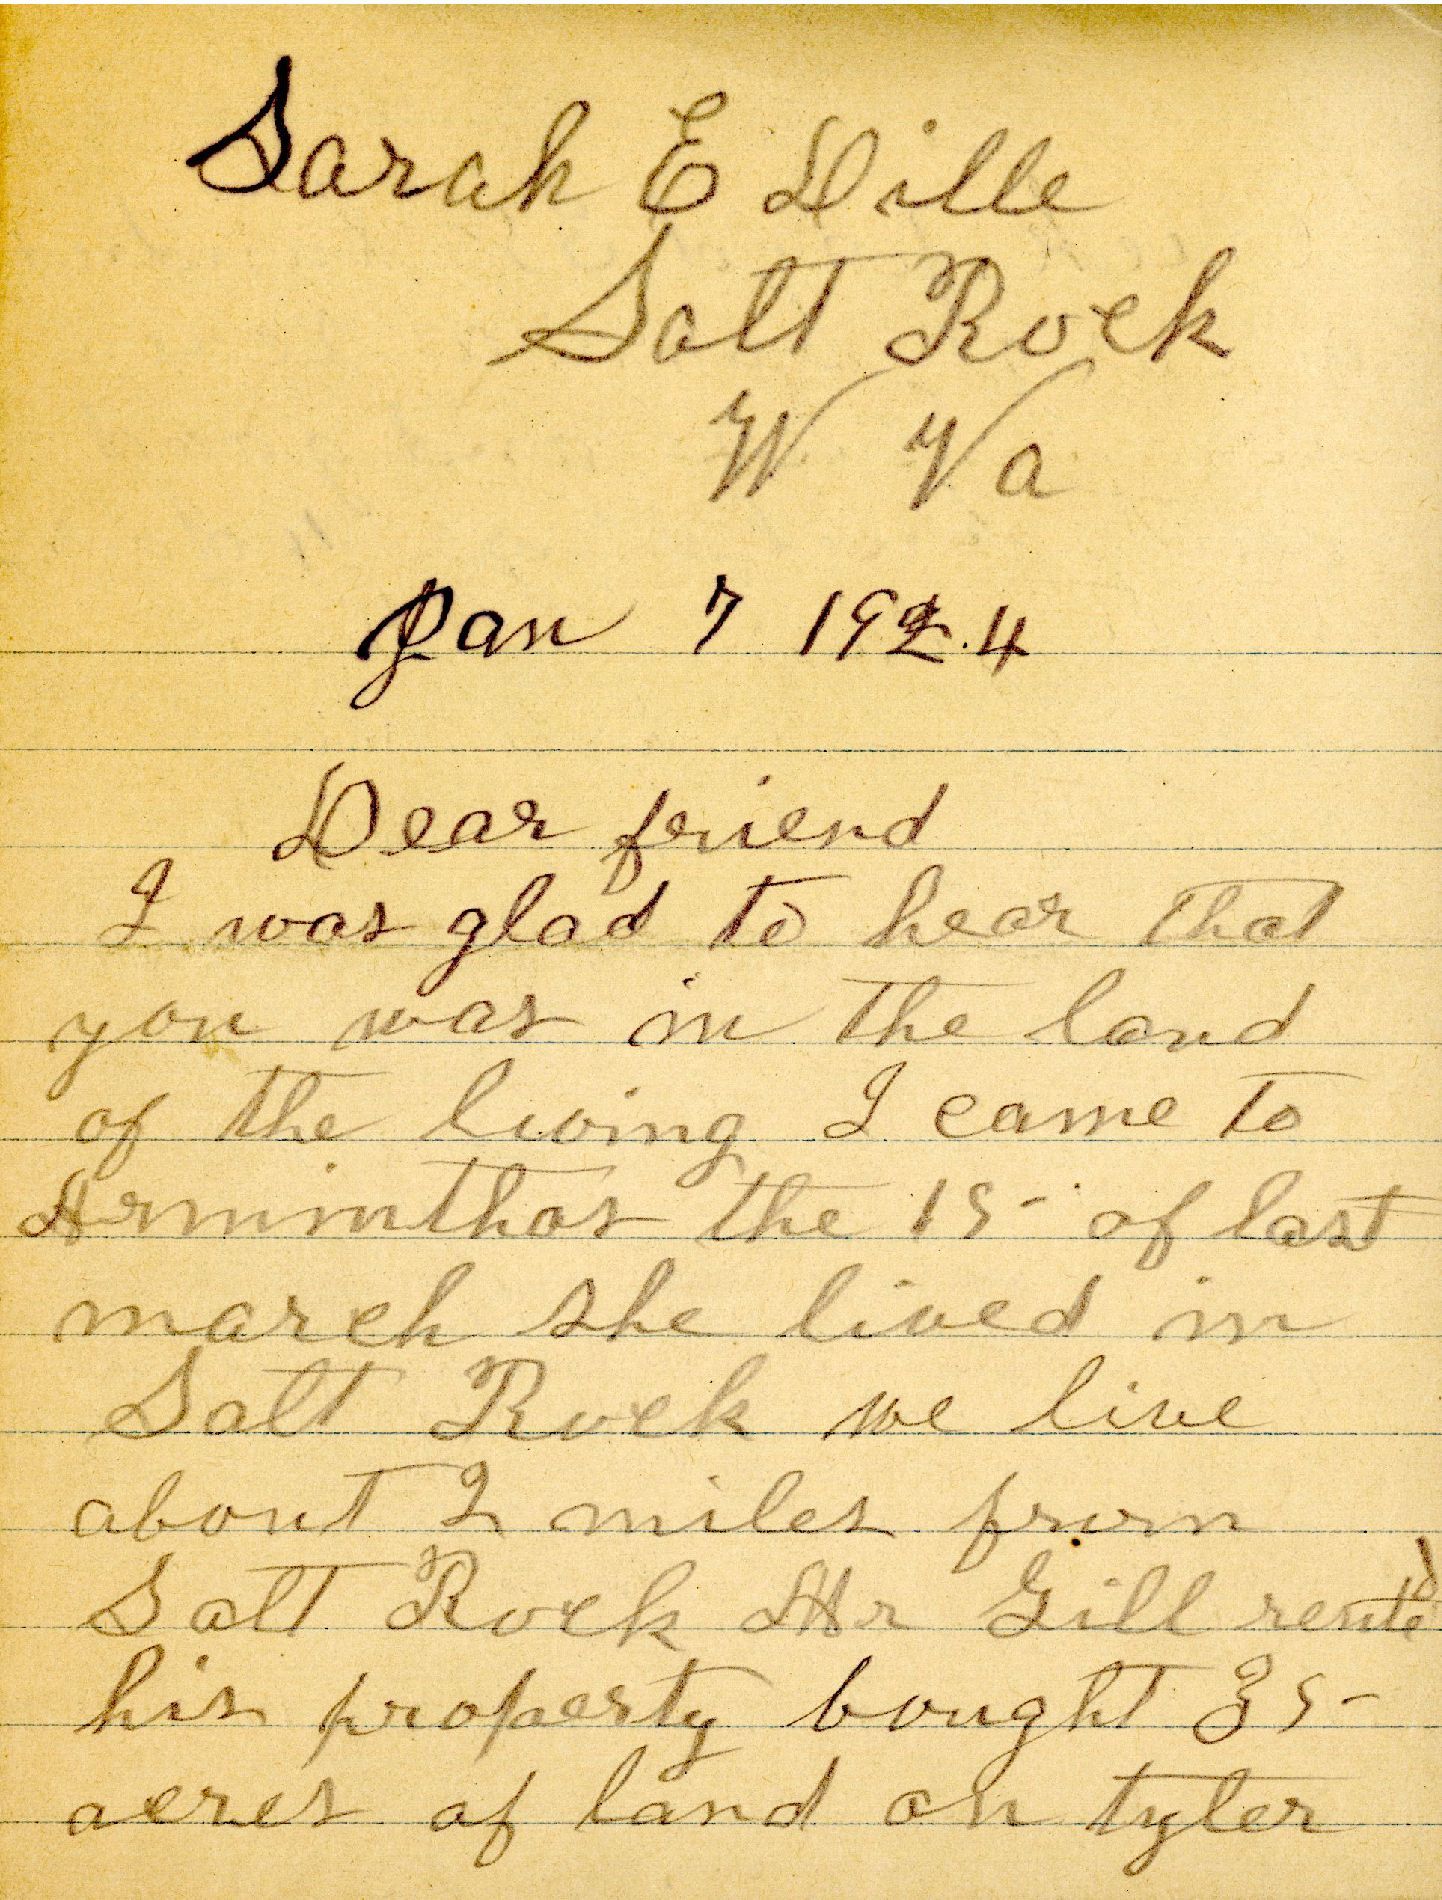 Sarah E Dille
Salt Rock
W Va
Jan 7 1924
Dear friend
I was glad to hear that
you was in the land
of the living I came to
Arminthas the 15 of last
march she lived in
Salt Rock we live
about 2 miles from
Salt Rock Mr Gill rented
his property bought 35
acres of land on tyler